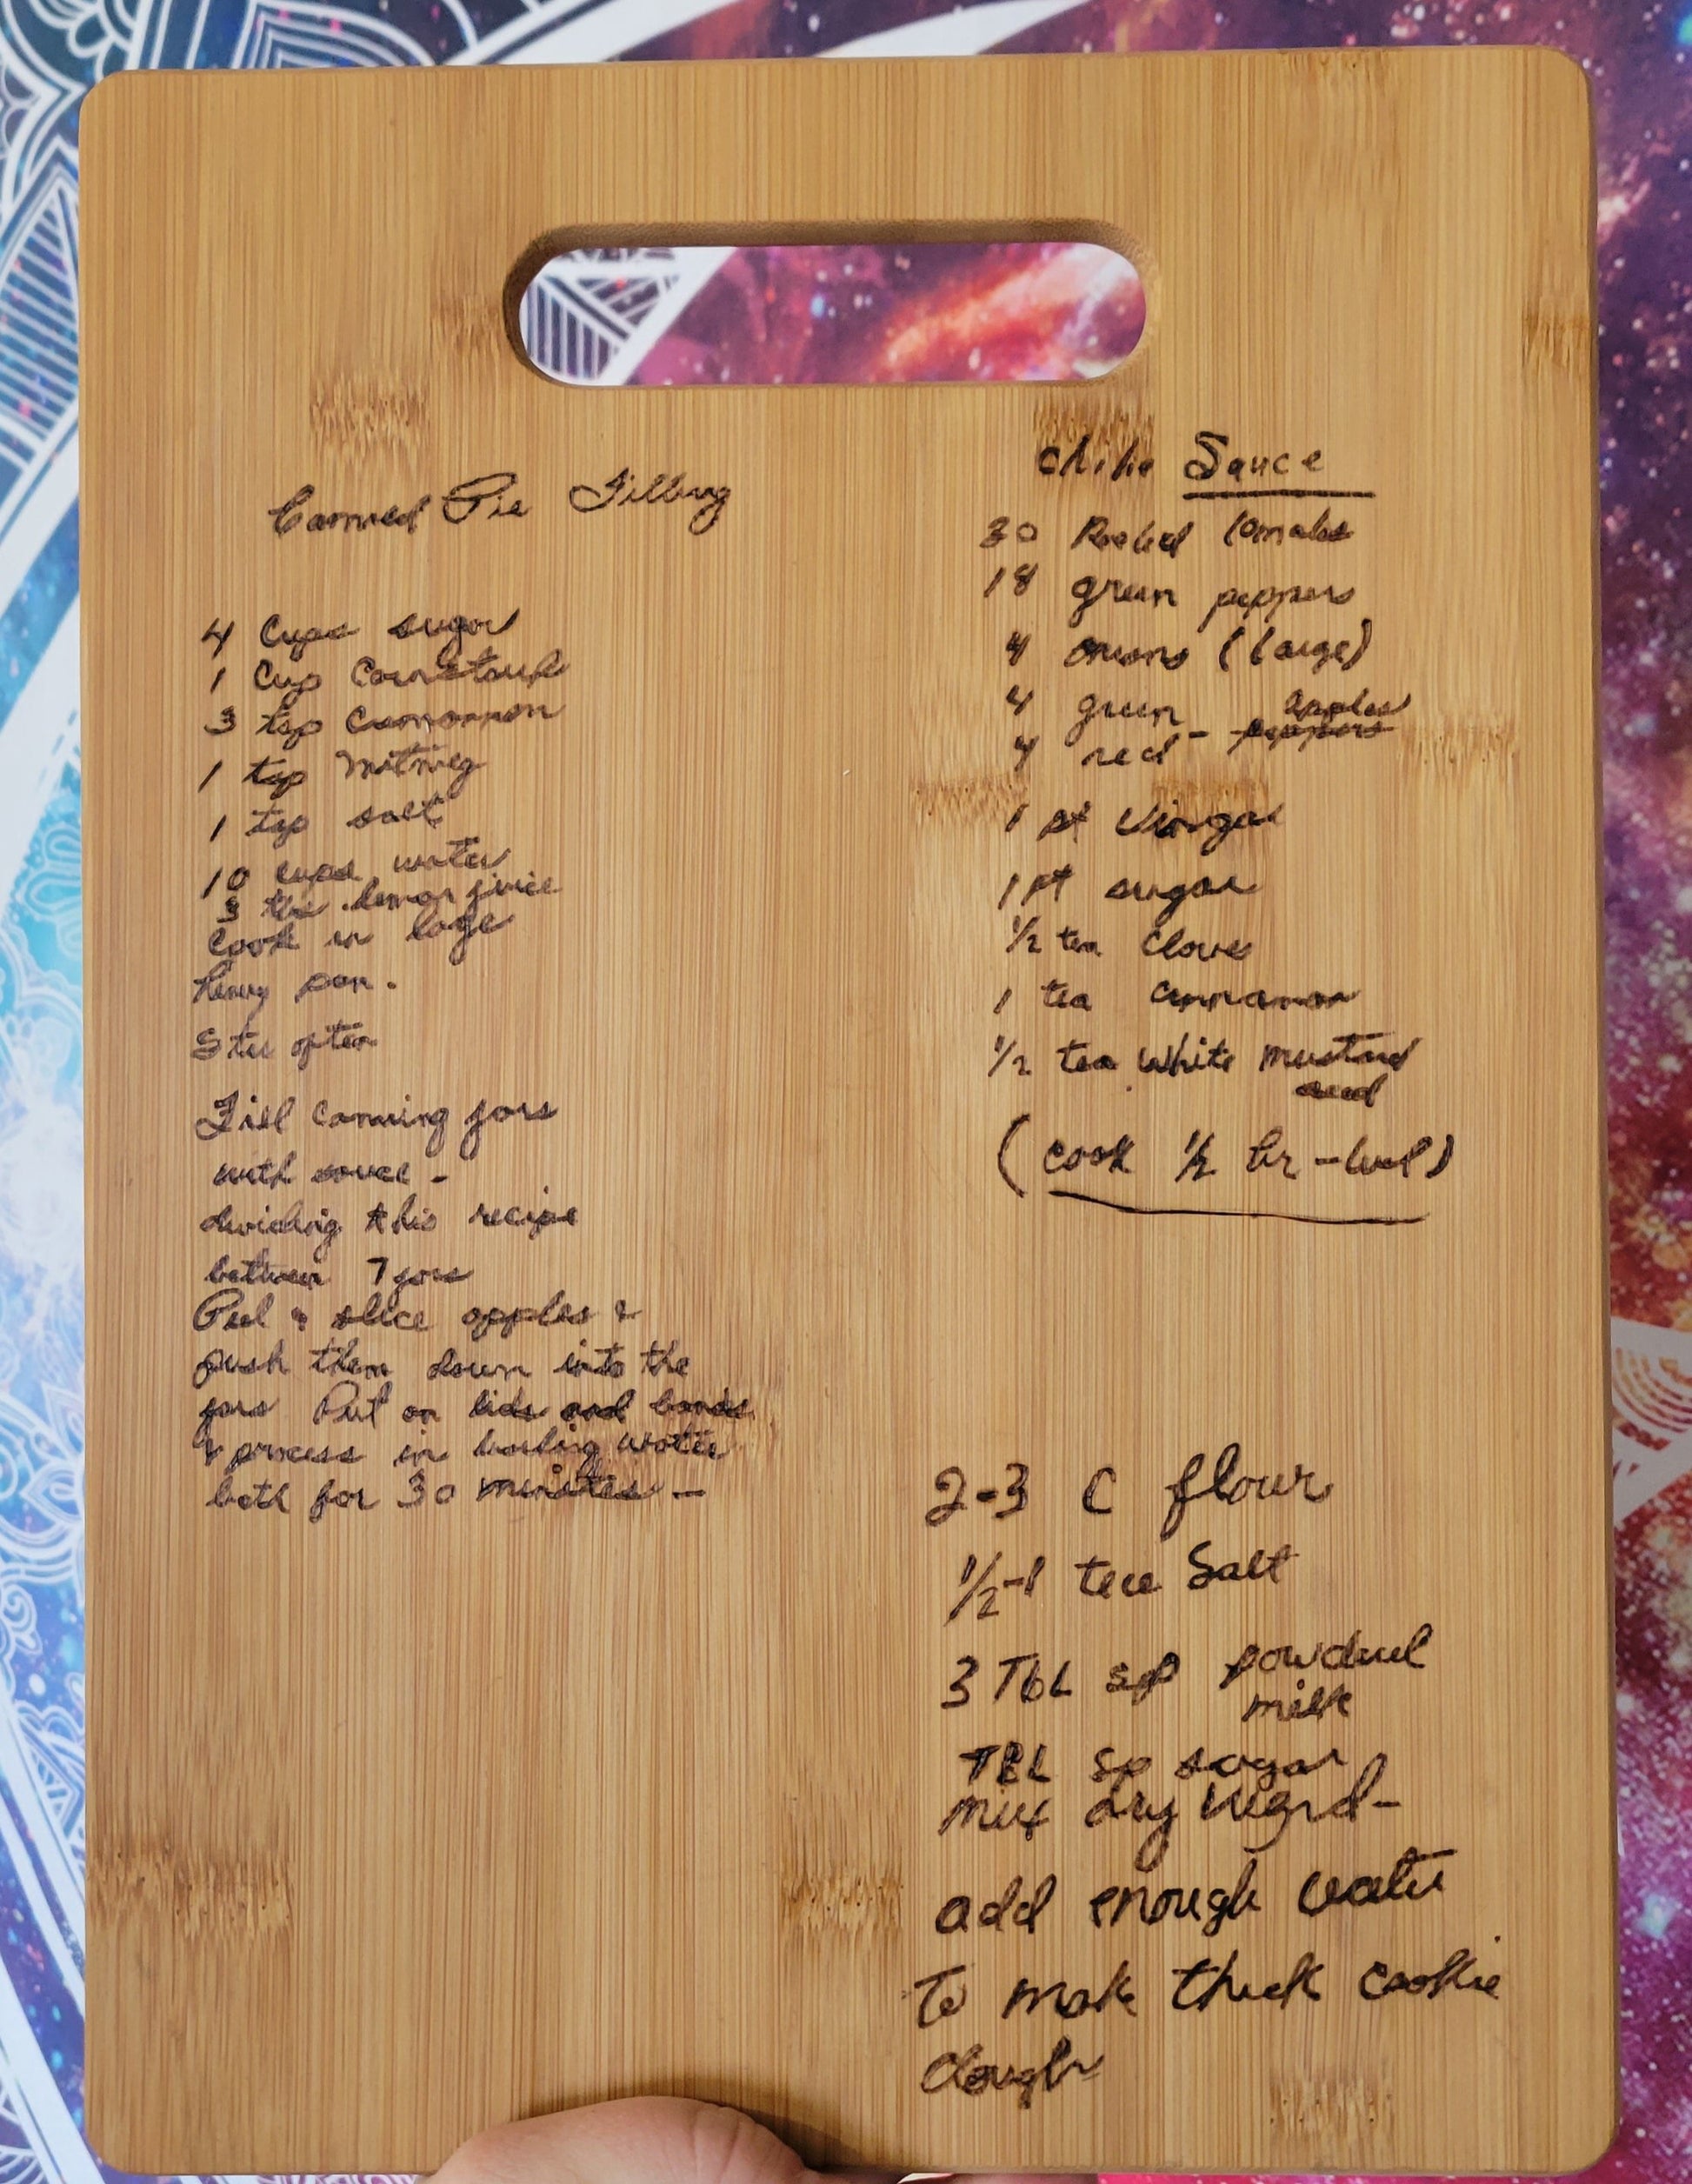 Canned Pie Filling
4 Cups sugar
1 Cup Cornstarch
3 tsp Cinnamon
1 tsp Nutmeg
1 tsp salt
10 cups water
3 tbs. lemon juice
Cook in large
heavy pan.
Stir often
Fill canning jars
with sauce -
dividing this recipe
between 7 jars
Peel & slice apples &
push them down into the
jars Put on lids and bands
& process in boiling water
bath for 30 minutes -
Chilie Sauce
30 Peeled tomatoes
18 green peppers
4 onions (large)
4 green - apples
4 red peppers
1 pt Vinegar
1 pt sugar
1/2 tea Cloves
1 tea Cinnamon
1/2 tea White mustard
seed
(cook 1/2 hr -
2-3 C flour
1/2-1 tea Salt
3 TBL sp powdered
milk
TBL sp sugar
mix dry ingrd-
add enough water
To make thick cookie
dough